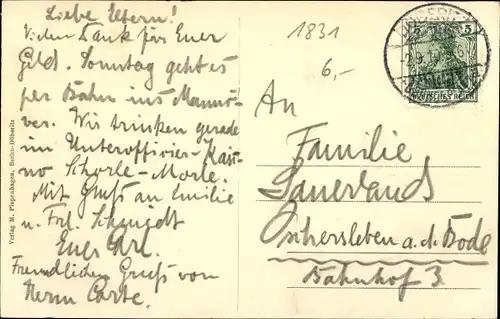 Liebe Eltern!
Vielen Dank für Euer
Geld. Sonntag geht es
per Bahn ins Mannö-
ver. Wir trinken gerade
im Unteroffizier-Kasi-
no Schorle-Morle.
Mit Gruß an Emilie
u. Frl. Schmidt
Euer Karl.
Freundlichen Gruß von
Herm
1831
6,-
An
Familie
Sauerland
Oschersleben a.d. Bode
Bahnhof 3
5 5
DEUTSCHES REICH
Verlag M. Piepenhagen, Buchn.-Döberitz